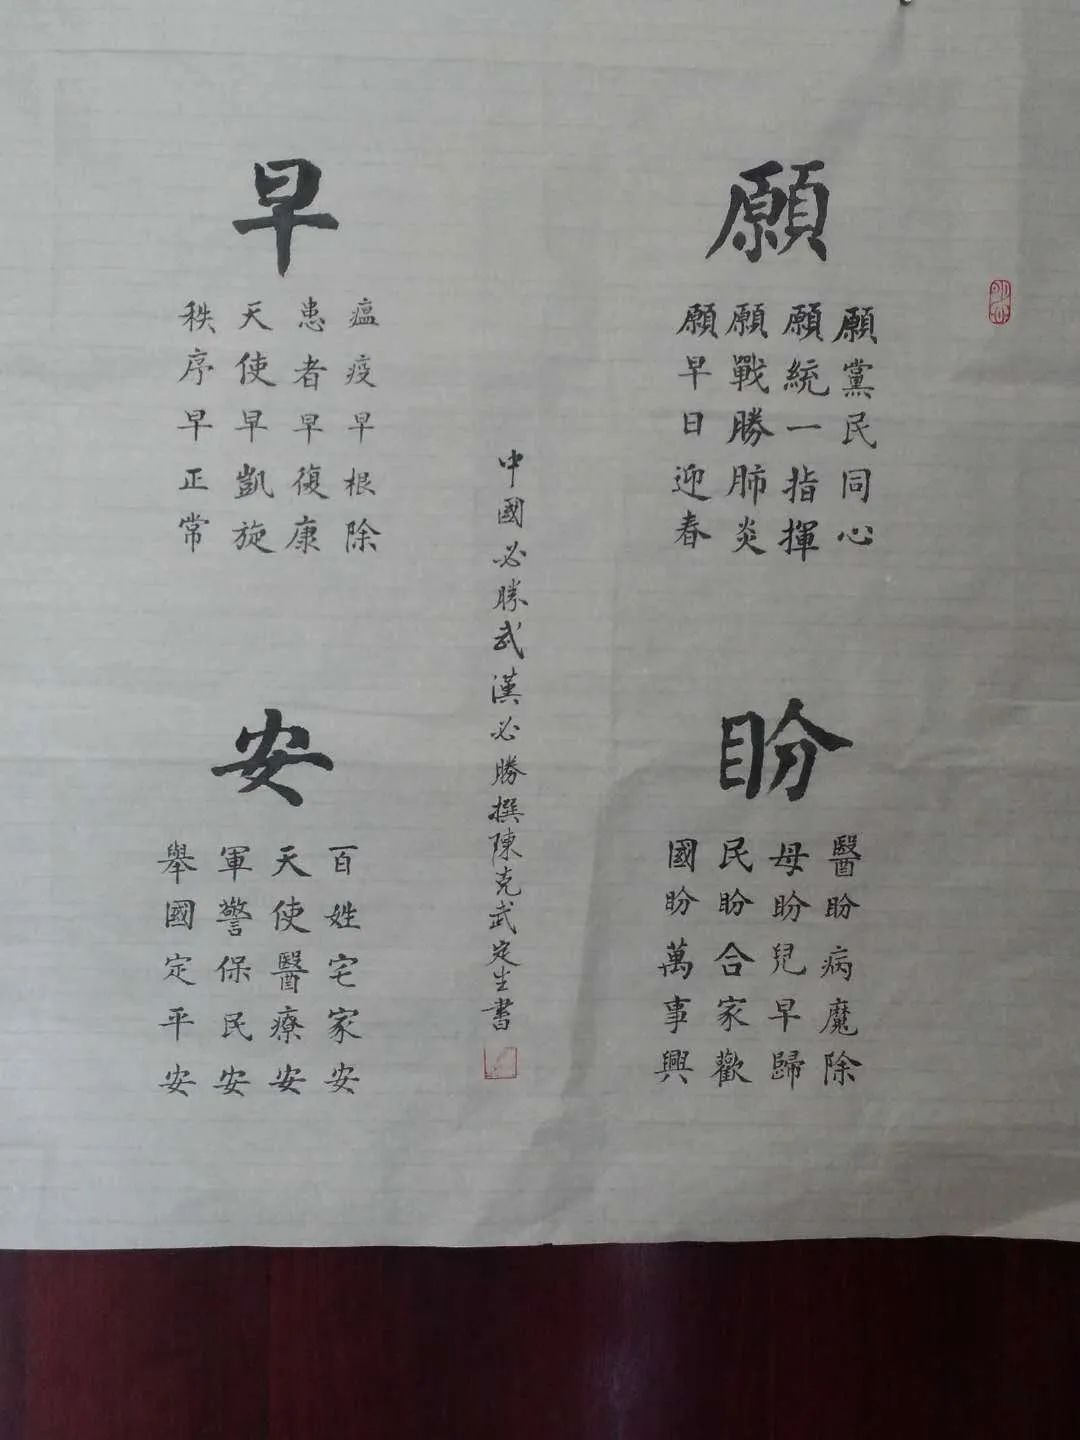 願
願黨民同心
願統一指揮
願戰勝肺炎
願早日迎春
盼
醫盼病魔除
母盼兒早歸
民盼合家歡
國盼萬事興
早
瘟疫早根除
患者早復康
天使早凱旋
秩序早正常
安
百姓宅家安
天使醫療安
軍警保民安
舉國定平安
中國必勝武漢必勝撰陳克武定生書